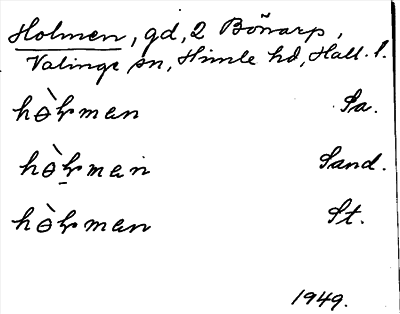 Holmen, gd, 2 Bönarp,
Valinge sn, Himle hd, Hall. l.
hɵ̀ɫman Sa.
hɵ̀ɫman Sand.
hɵ̀ɫman St.
1949.